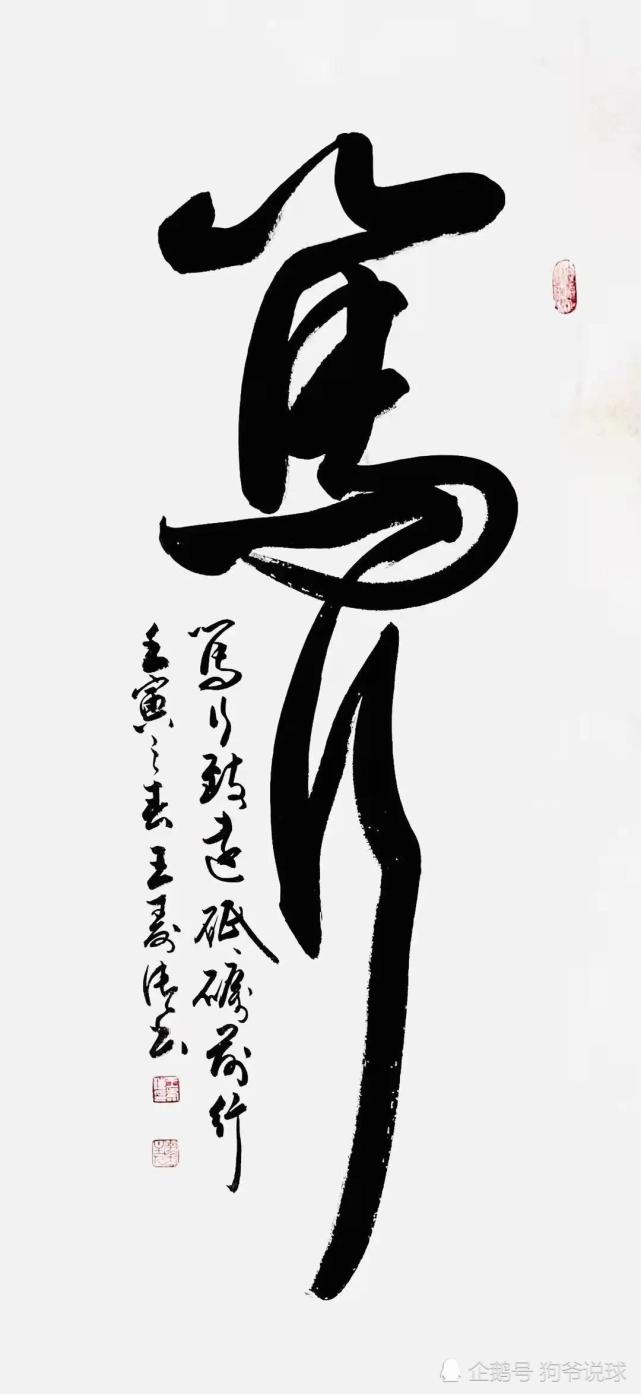 篤行
篤行致遠砥礪前行
壬寅之春王壽清书
企鹅号 狗爷说球